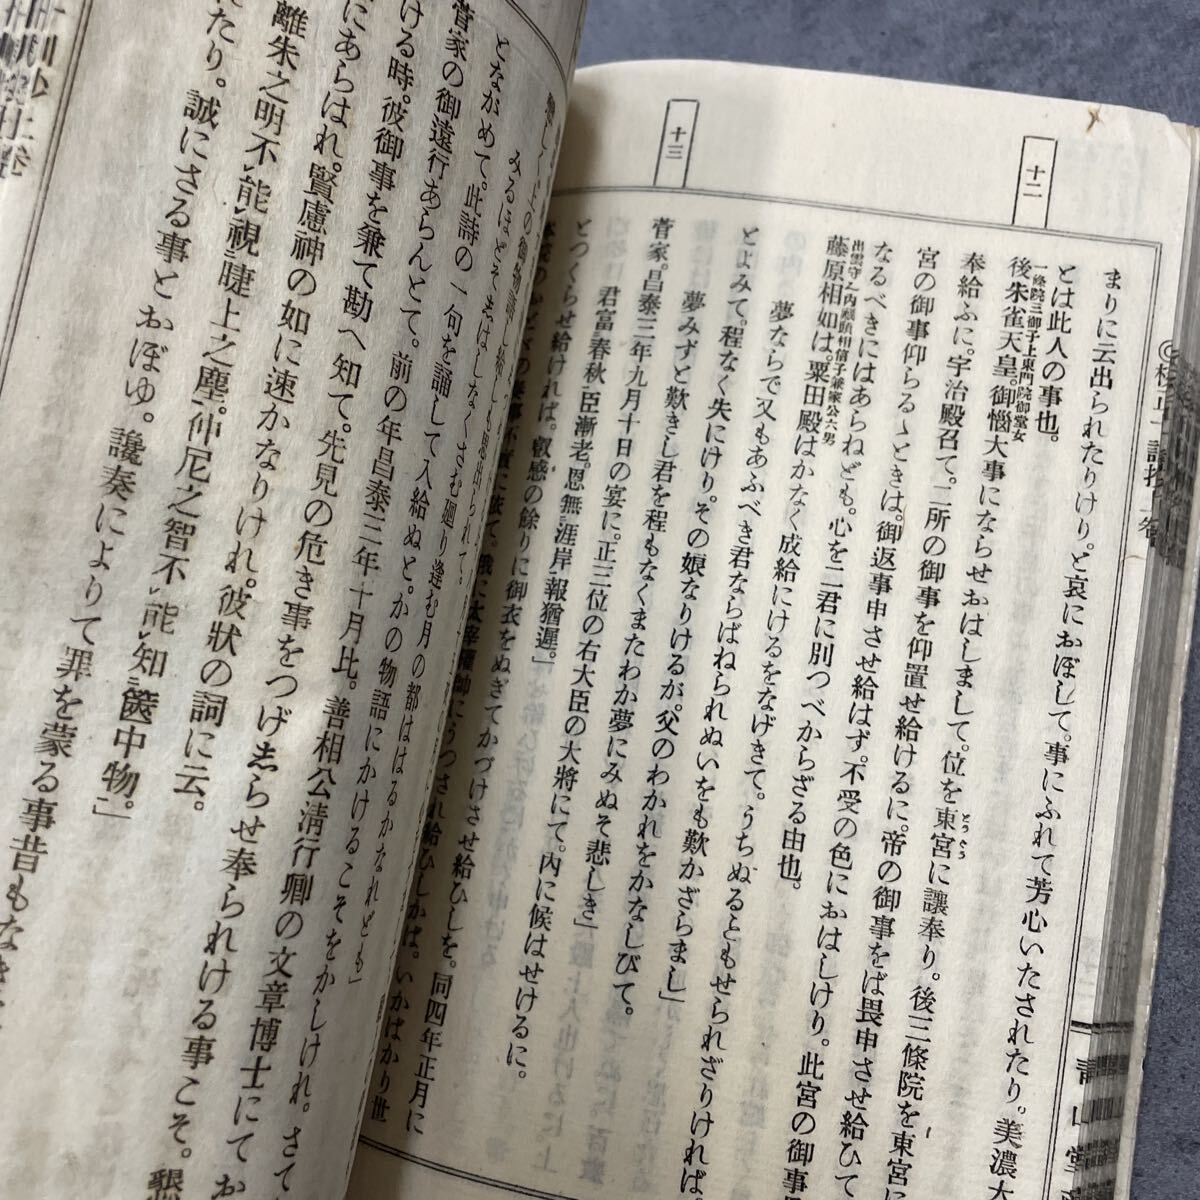 十二
まりに云出られたりけり。と哀におぼして。事にふれて芳心いたされたり。美濃大
とは此人の事也。
一條院三御子上東門院御堂女
後朱雀天皇。御惱大事にならせおはしまして。位を東宮に讓奉り。後三條院を東宮に
奉給ふに。宇治殿召て。二所の御事を仰置せ給けるに。帝の御事をば畏申させ給ひて
宮の御事仰らるゝときは。御返事申させ給はず。不受の色におはしけり。此宮の御事
なるべきにはあらねども。心を二君に別つべからざる由也。
出雲守ノ内藏頭相信子兼家公六男
藤原相如は。粟田殿はかなく成給にけるをなげきて。うちぬるともせられざりければ。
夢ならで又もあふべき君ならばねられぬいをも歎かざらまし」
とよみて。程なく失にけり。その娘なりけるが。父のわかれをかなしびて。
夢みずと歎きし君を程もなくまたわか夢にみぬそ悲しき」
十三
菅家。昌泰三年九月十日の宴に。正三位の右大臣の大將にて。内に候はせけるに。
君富春秋臣漸老。恩無涯岸報猶遲。」
とつくらせ給ければ。叡感の餘りに御衣をぬぎてかづけさせ給ひしを。同四年正月に
みるほどそしはしなくさむ廻り逢む月の都ははるかなれども」
とながめて。此詩の一句を誦して入給ぬと。かの物語にかけるこそをかしけれ。さて
菅家の御遠行あらんとて。前の年昌泰三年十月比。善相公淸行卿の文章博士にてお
ける時。彼御事を兼て勘へ知て。先見の危き事をつげしらせ奉られける事こそ。懇
にあらはれ。賢慮神の如に速かなりけれ。彼狀の詞に云。
離朱之明不能視睫上之塵。仲尼之智不能知篋中物。」
たり。誠にさる事とおぼゆ。讒奏によりて罪を蒙る事昔もなき